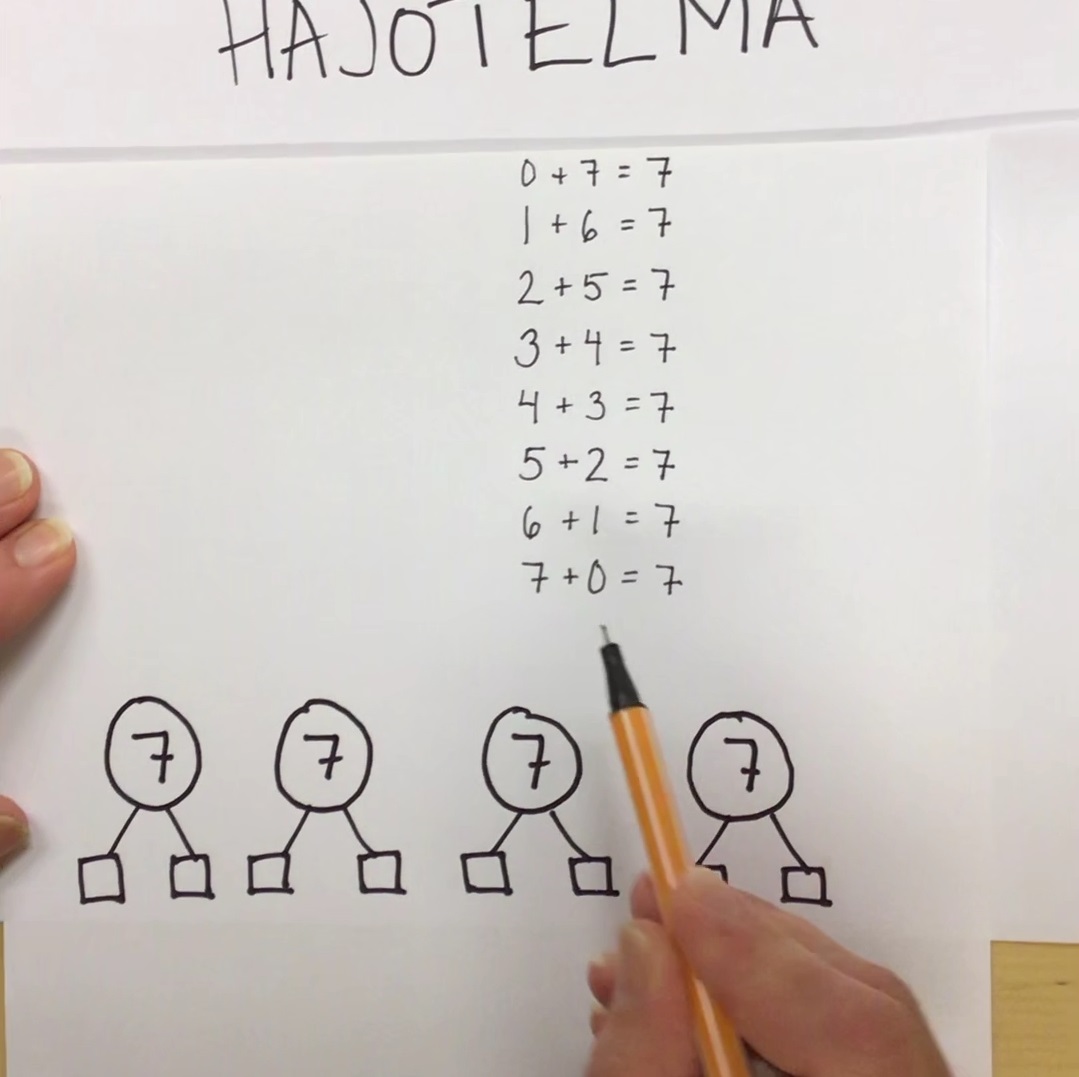 HAJOTELMA
0 + 7 = 7
1 + 6 = 7
2 + 5 = 7
3 + 4 = 7
4 + 3 = 7
5 + 2 = 7
6 + 1 = 7
7 + 0 = 7
7 7 7 7